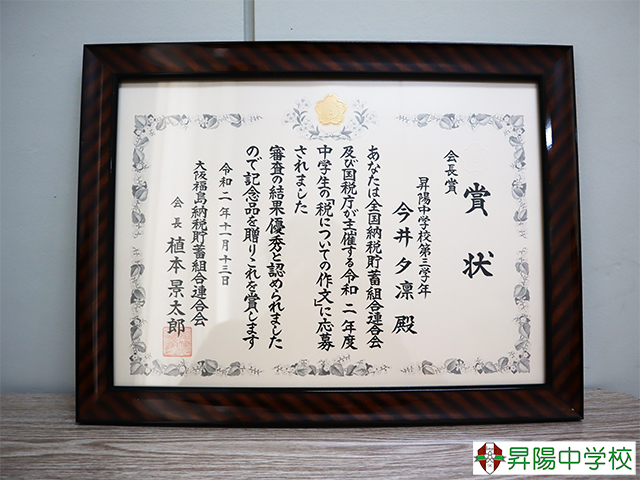 賞状
会長賞
昇陽中学校第三学年
今井夕凛殿
あなたは全国納税貯蓄組合連合会
及び国税庁が主催する令和二年度
中学生の「税についての作文」に応募
されました
審査の結果優秀と認められました
ので記念品を贈りこれを賞します
令和二年十一月十三日
大阪福島納税貯蓄組合連合会
会長 植本景太郎
昇陽中学校